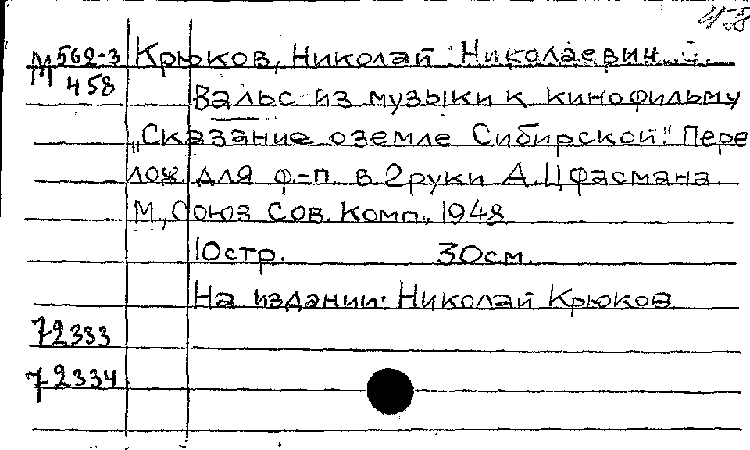 458
М 562-3 Крюков, Николай Николаевич.
458 Вальс из музыки к кинофильму
„Сказание о земле Сибирской". Пере
лож. для ф-п. в 2 руки А. Цфасмана
М., Союз Сов. Комп., 1948
10 стр. 30 см.
На издании: Николай Крюков
72333
72334